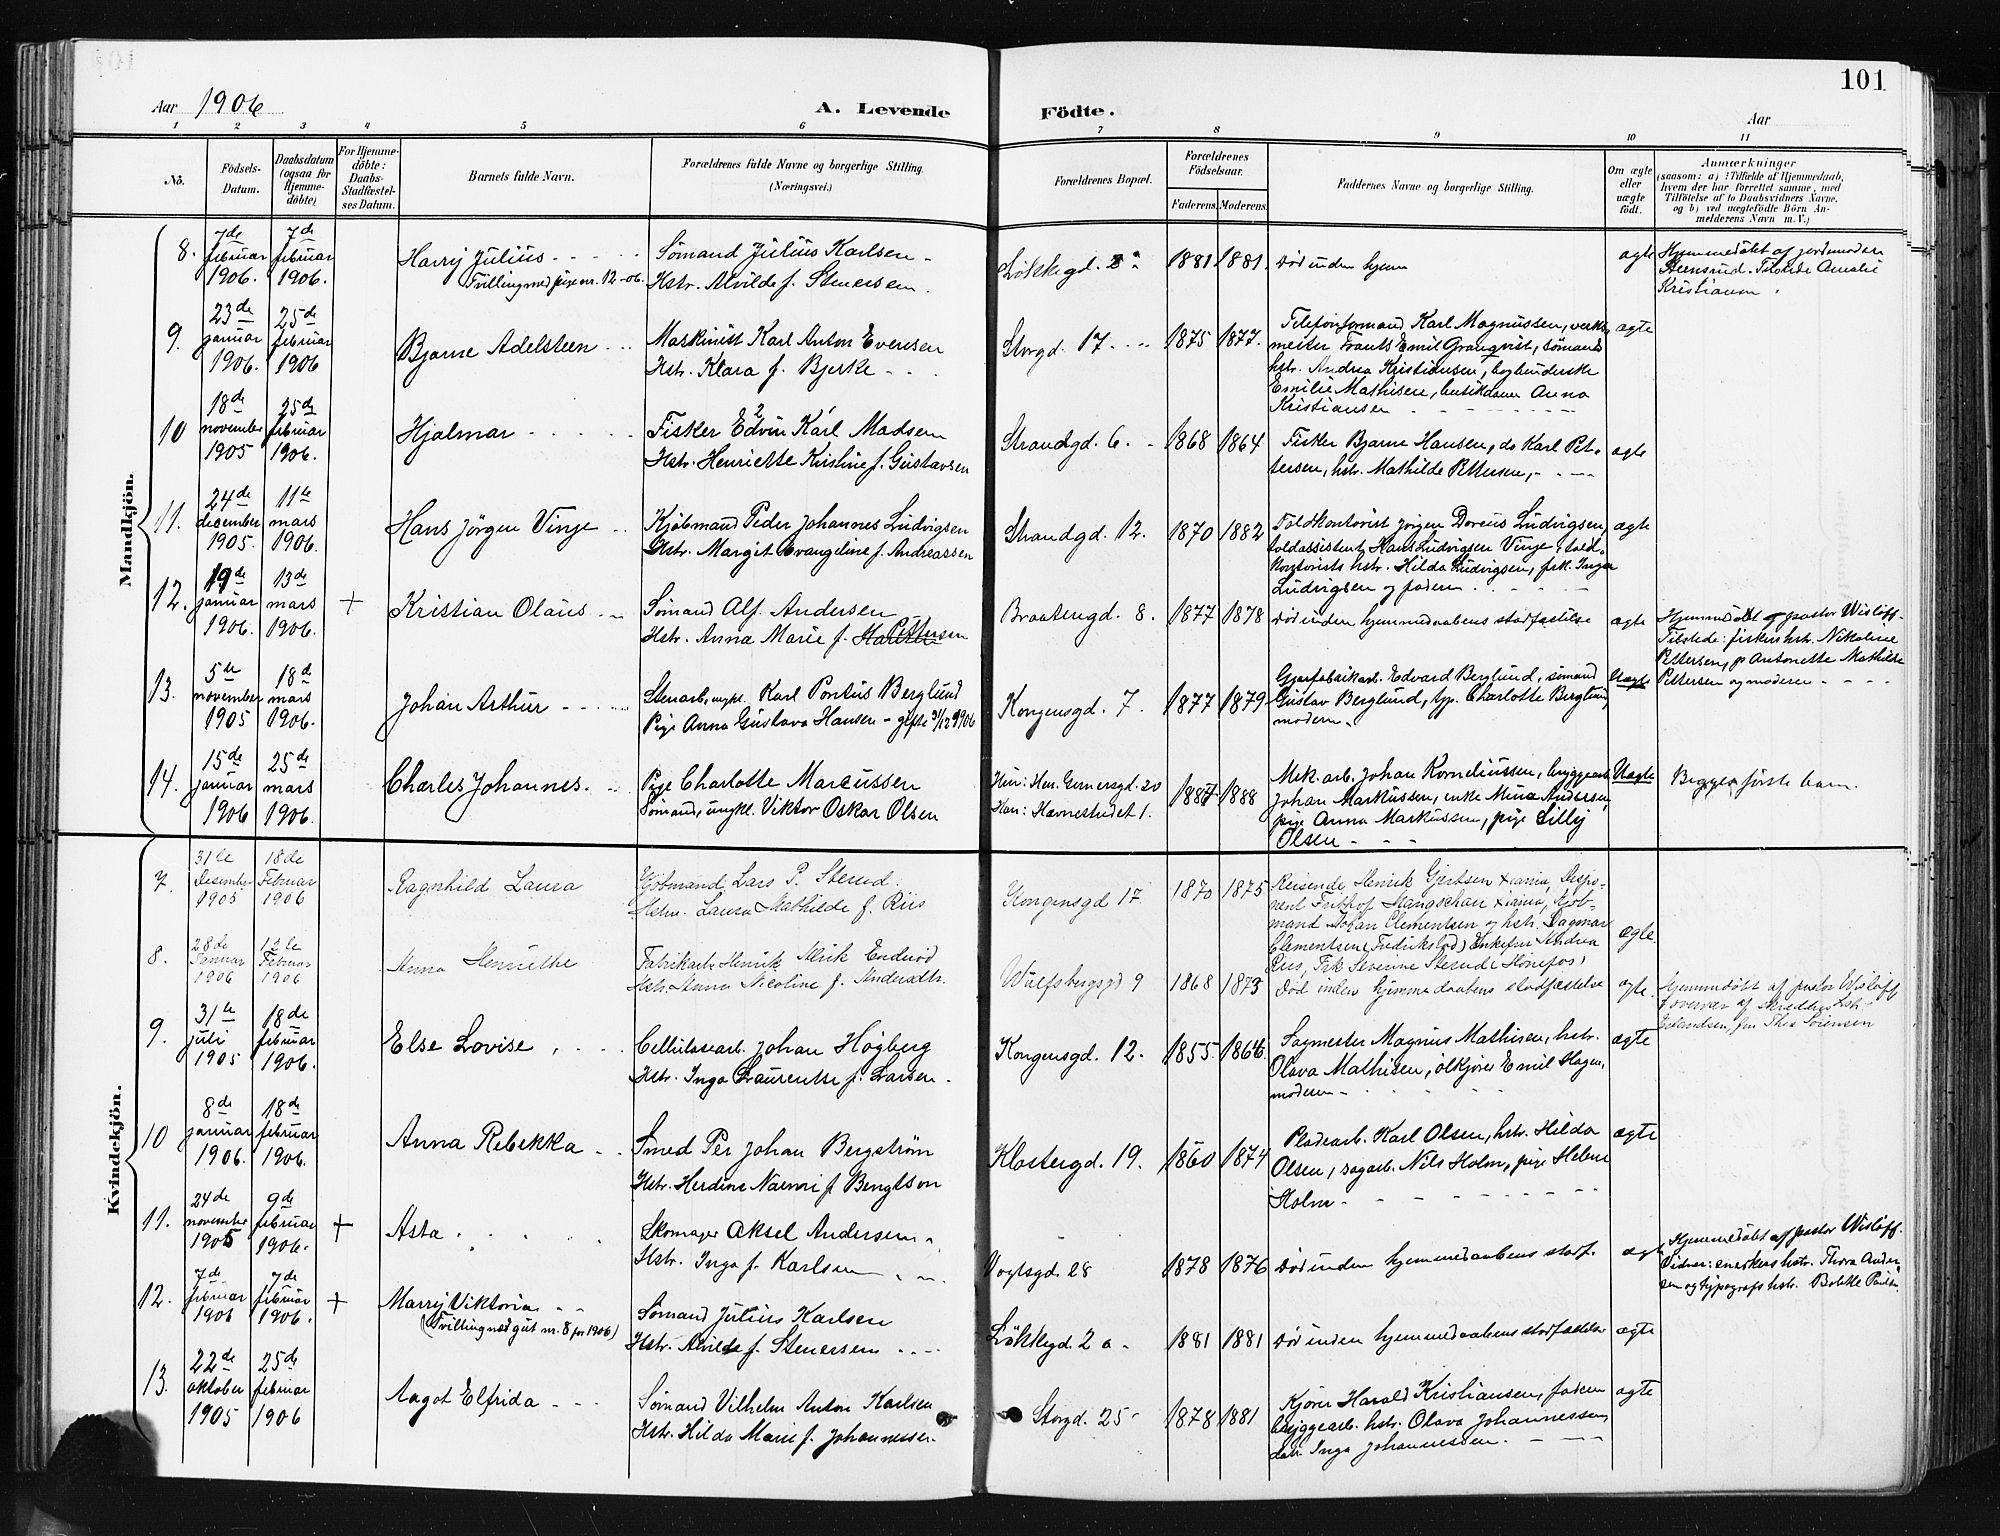 101
Aar 1906
A. Levende
Födte.
Aar
1 2 3 4 5 6 7 8 9 10 11
No.
Födsels-Datum.
Daabsdatum (ogsaa for Hjemme-döbte)
For Hjemme-döbte: Daabs-Stadfæstel-ses Datum.
Barnets fulde Navn.
Forældrenes fulde Navne og borgerlige Stilling. (Næringsvei.)
Forældrenes Bopæl.
Forældrenes Födselsaar.
Faderens. Moderens.
Faddernes Navne og borgerlige Stilling.
Om ægte eller uægte födt.
Anmærkninger
(saasom: a) i Tilfælde af Hjemmedaab, hvem der har forrettet samme, med Tilföielse af to Daabsvidners Navne, og b) ved uægtefödte Börn An-melderens Navn m. V.)
Mandkjön.
8. 7de februar 1906. 7de februar 1906. Harry Julius
Tvilling med pige nr. 12-06.
Sømand Julius Karlsen
Hstr. Alvilde f. Stenersen.
Løkkegd. 2a 1881 1881. Død inden hjem ægte
Hjemmedøbt af jordmoder
Steensrud. Tilstede Amalie
Kristiansen
9. 23de januar 1906. 25de februar 1906 Bjarne Adelsteen
Maskinist Karl Anton Evensen
Hstr. Klara f. Bjerke
Storgd. 17 1875 1877. ægte
Telefonformand Karl Magnussen, verks-
meister Frants Emil Granqvist, sømands
hstr. Andrea Kristiansen, boghenderske
Emilie Mathisen, butikdame Anna
Kristiansen
10 18de november 1905 25de februar 1906. Hjalmar
Fisker Edvin Karl Madsen
Hstr. Henriette Kirstine f. Gustavsen
Strandgd. 6. 1868 1864 ægte
Fisker Bjarne Hansen, do Karl Pet-
tersen, hstr. Mathilde Pettersen,
11. 24de december 1905. 11te mars 1906. Hans Jörgen Vinje
Kjøbmand Peder Johannes Ludvigsen
Hstr. Margit Evangeline f. Andreassen
Strandgd. 12. 1870 1882 ægte
Toldkontorist Jörgen Doreus Ludvigsen,
toldassistent Hans Ludvigsen Vinje, told-
kontorists hstr. Hilda Ludvigsen, frk. Inga
Ludvigsen og faderen
12. 19de januar 1906. 13de mars 1906. + Kristian Olaus
Sømand Alf. Andersen
Hstr. Anna Marie f. Pettersen
Braatengd. 8. 1877 1878 Død inden hjemmedaabens stadfæstelse ægte
Hjemmedøbt af pastor Wisløff.
Tilstede: fiskers hstr. Nikoline
Pettersen, p Antonette Mathilde
Pettersen og moderen
13. 5te november 1905 18de mars 1906. Johan Arthur
Stenarb. ungk. Karl Pontus Berglund
Pige Anna Gustava Hansen - gifte 31/12 1906
Kongensgd. 7. 1877 1879 Uægte
Gjærfabrikarb. Edvard Berglund, sømand
Gustav Berglund, Charlotte Berglund
moderen
14. 15de januar 1906 25de mars 1906. Charles Johannes.
Pige Charlotte Marcussen
Sømand, ungk. Viktor Oskar Olsen
Hun: Hen. Gernersgd. 20
Han: Havnestrædet 1.
1887 1888 Uægte
Mek. arb. Johan Korneliussen, bryggearb
Johan Markussen, enke Mina Andersen,
pige Anna Markussen, pige Lilly
Olsen
Begges første barn.
Kvindekjön.
7. 31te Desember 1905 18de Februar 1906 Ragnhild Laura
Kjøbmand Lars P. Sterud.
Hstru. Laura Mathilde f. Riis
Kongensgd 17 1870 1875 ægte.
Reisende Henrik Gjertsen Xiania, Dispo-
nent Fritjof Stangschau Xiania, Kjøb-
mand Johan Clementsen og hstr. Dagmar
Clementsen (Fredrikstad) Enkefru Andrea
Riis, Frk Severine Sterud (Hønefos)
8. 28de Januar 1906 12te Februar 1906 Anna Henriethe
Fabrikarb. Henrik Ulrik Enderød
Hstr. Anna Nicoline f. Andersdtr.
Wulfsbergsgd 9 1868 1873 Død inden hjemmedaabens stadfæstelse ægte.
Hjemmedøbt af pastor Wisløff
i overvær af Skredders hstr.
Erlandsen, fru Thea Sørensen
9. 31te juli 1905 18de februar 1906. Else Lovise
Cellulosearb. Johan Högberg
Hstr. Inga Laurentse f. Larsen
Kongensgd. 12. 1855. 1864. ægte
Sagmester Magnus Mathisen, hstr.
Olava Mathisen, ølkjører Emil Hagen,
moderen
10 8de januar 1906. 18de februar 1906. Anna Rebekka
Smed Per Johan Bergström
Hstr. Herdine Naemi f. Bengtson
Klostergd. 19. 1860 1874 ægte
Pladearb. Karl Olsen, hstr. Hilda
Olsen, sagarb. Nils Holm, pige Helene
Holm
11. 24de november 1905 9de februar 1906. + Asta
Skomager Aksel Andersen
Hstr. Inga f. Karlsen
Vogtsgd. 28 1878 1876 Død inden hjemmedaabens stadf. ægte
Hjemmedøbt af pastor Wisløff.
Vidner: snekkers hstr. Thora Ander-
sen og typografs hstr. Bolette Paulsen
12. 7de februar 1906 7de februar 1906. + Marry Viktoria
(Tvilling med gut nr. 8 for 1906)
Sømand Julius Karlsen
Hstr. Alvilde f. Stenersen
Løkkegd. 2a 1881 1881 Død inden hjemmedaabens stadfæstelse ægte
13. 22de oktober 1905 25de februar 1906 Aagot Elfrida
Sømand Vilhelm Anton Karlsen
Hstr. Hilda Marie f. Johannessen.
Storgd. 25 1878 1881 ægte
Kjører Harald Kristiansen, faderen
bryggearb. hstr. Olava Johannessen,
datr. Inga Johannessen.